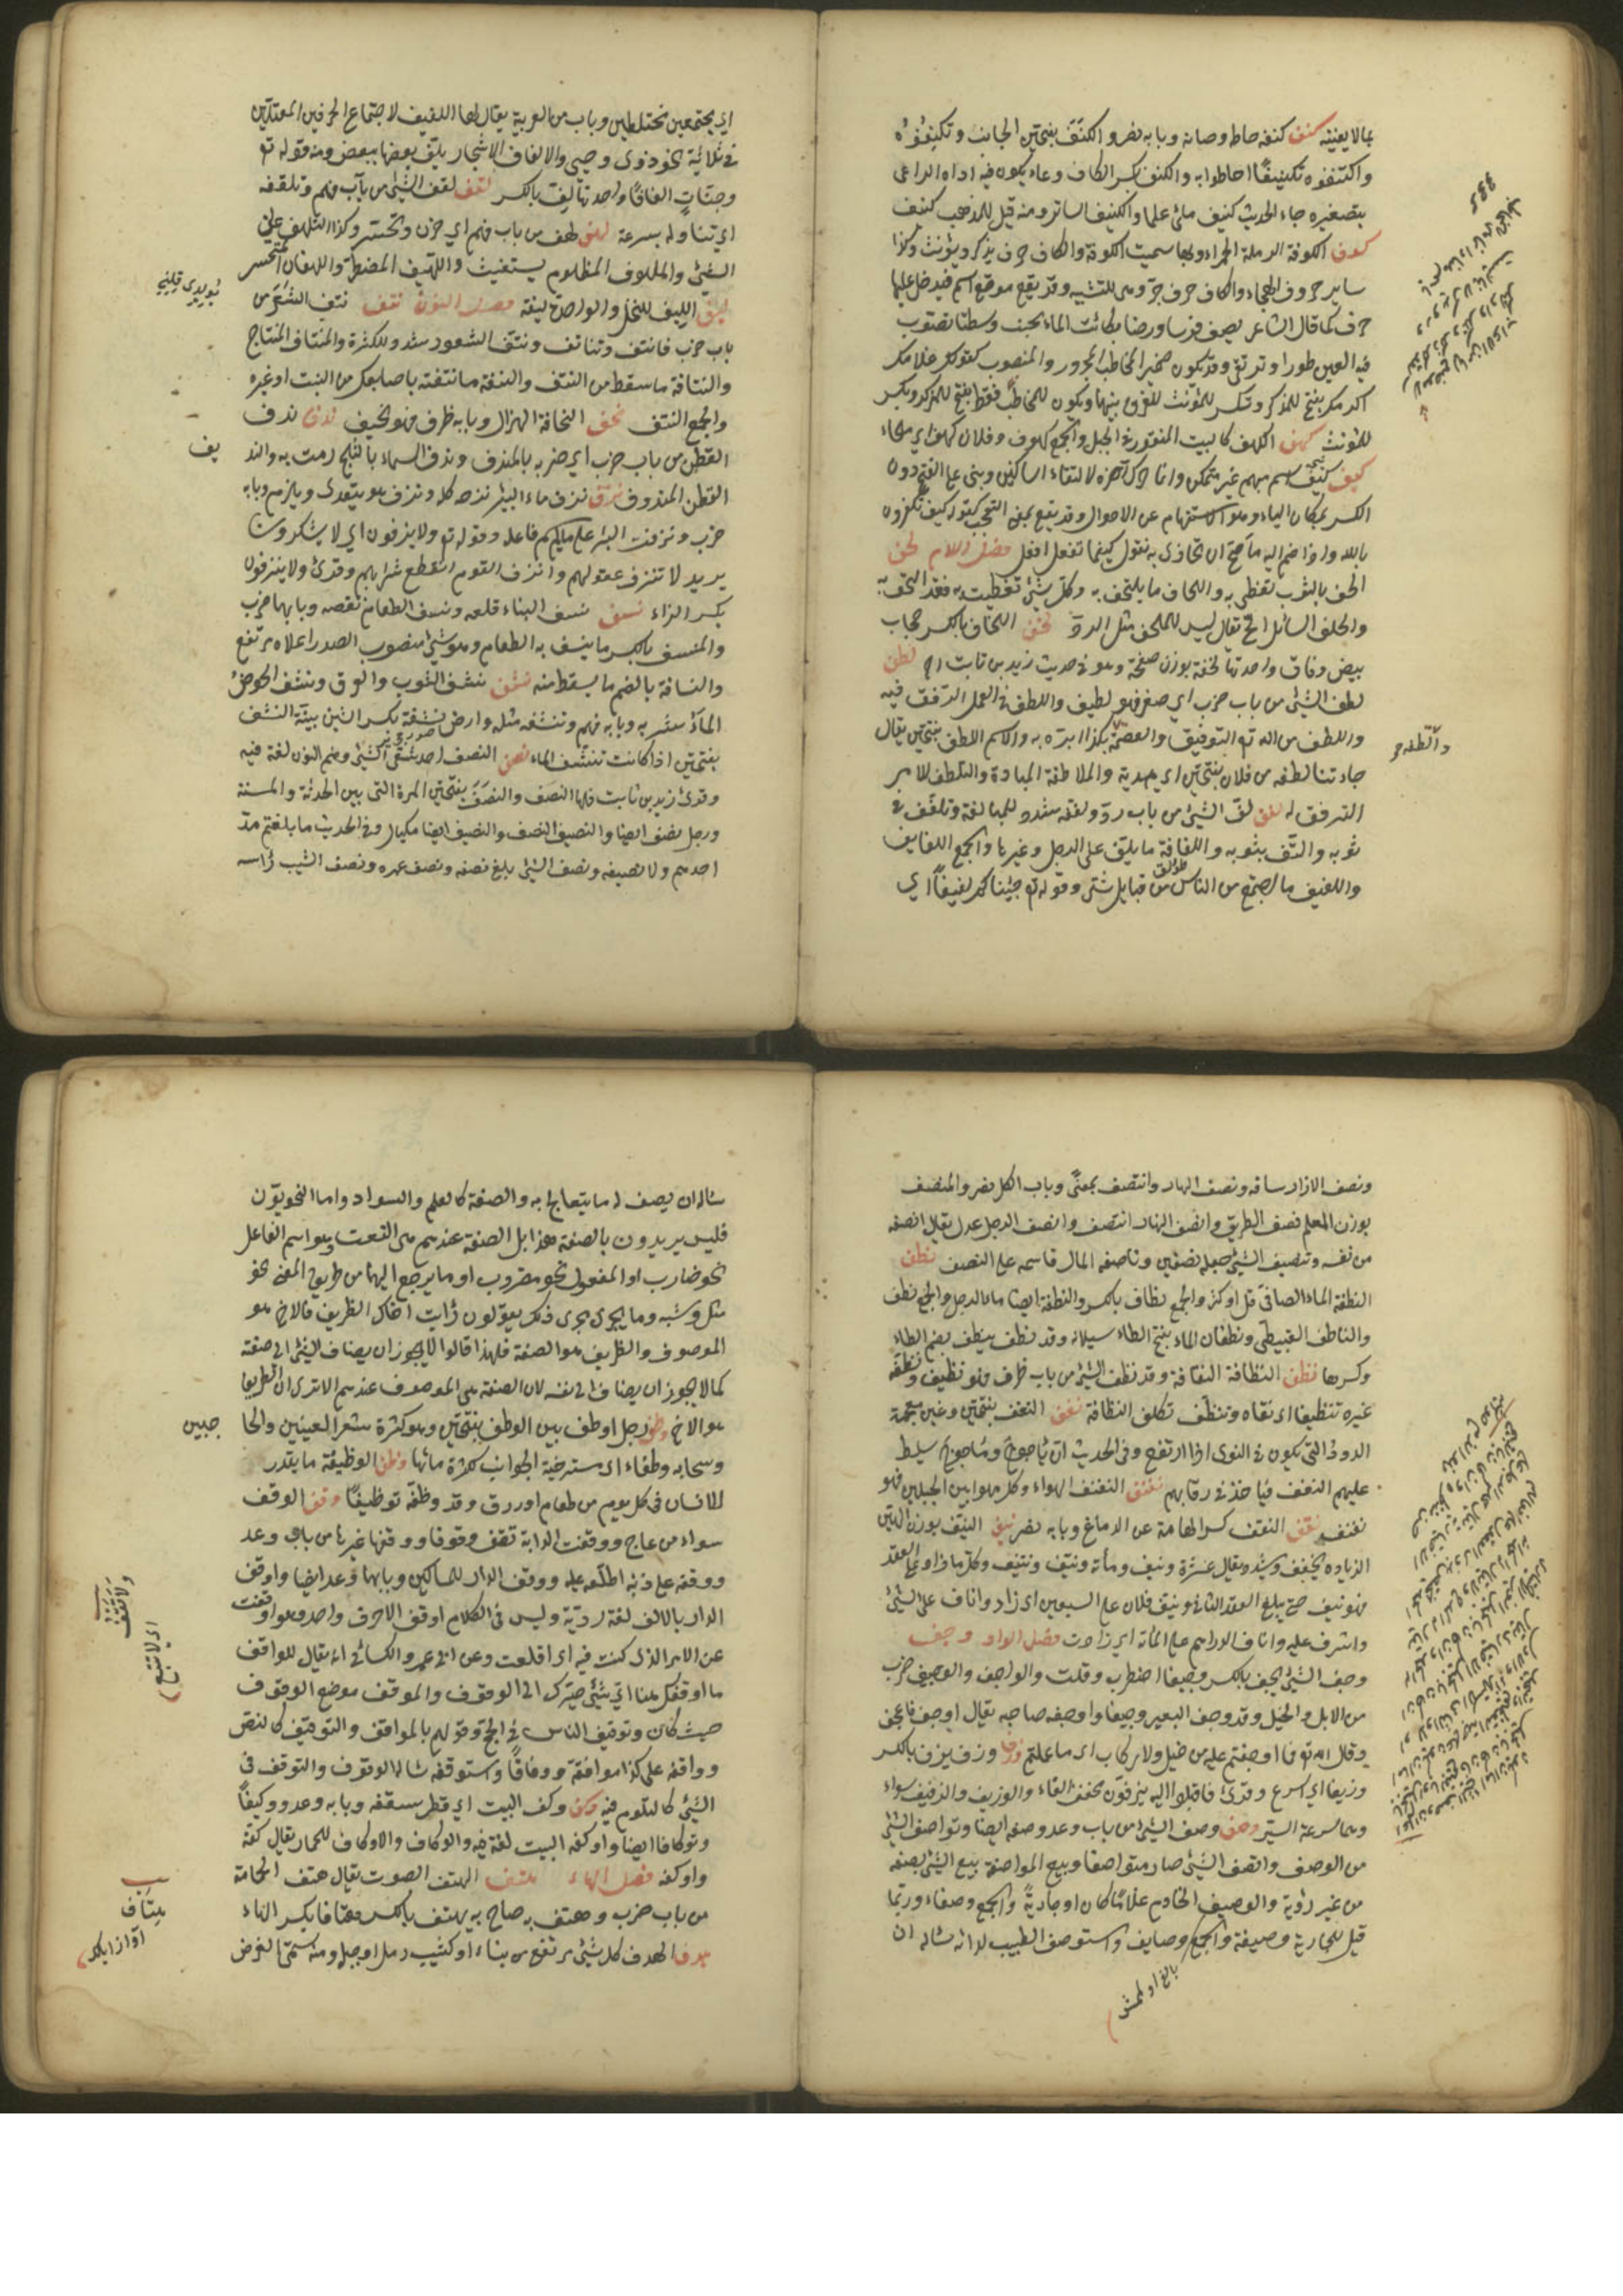 بمالا يعنيه كنف كنفه حاطه وصانه وبابه نصر والكنف بفتحتين الجانب وتكنفوه
واكتنفوه تكنيفًا احاطوا به والكنف بكسر الكاف وعاء يكون فيه اداة الراعي
بتصغيره جاء الحديث كنيف ملئ علما والكنيف الساتر ومنه قيل للمذهب كنيف
كوف الكوفة الرملة الحمراء وبها سميت الكوفة والكاف حرف يذكر ويؤنث وكذا
ساير حروف الهجاء والكاف حرف جر وهي للتشبيه وقد يقع موقع اسم فيدخل عليها
حرف كما قال الشاعر يصف فرسا ورحنا بكابن الماء يجنب وسطنا تصوب
فيه العين طورا وترتقي وقد تكون ضمير المخاطب المجرور والمنصوب كقولك غلامك
اكرمك يفتح للمذكر وتكسر للمؤنث للفرق بينهما وتكون للخطاب فقط يفتح للمذكر ويكسر
للمؤنث كهف الكهف كالبيت المنقور في الجبل والجمع كهوف وفلان كهف اي ملجاء
كيف كيف اسم مبهم غير متمكن وانما حرك آخره لالتقاء الساكنين وبني على الفتح دون
الكسر لمكان الياء وهو للاستفهام عن الاحوال وقد يقع بمعنى التعجب كقوله كيف تكفرون
بالله واذا ضم اليه ما صح ان تجازى به تقول كيفما تفعل افعل فصل اللام لحف
الحف بالثوب تغطى به واللحاف ما يلتحف به وكل شئ تغطيت به فقد التحفت به
والحف السائل الح يقال ليس للملحف مثل الرد لخف اللخاف بالكسر حجارة
بيض رقاق واحدتها لخفة بوزن صفحة وهو في حديث زيد بن ثابت رض لطف
لطف الشئ من باب حرب اي صغر فهو لطيف واللطف في العمل الرفق فيه
واللطف من الله تع التوفيق والعصمة والطفه بكذا ابره به والاسم اللطف بفتحتين يقال
جاءتنا لطفه من فلان بفتحتين اي هدية والملاطفة المبارة والتلطف للامر
الترفق له لفف لف الشئ من باب رد ولففه مشدد للمبالغة وتلفف في
ثوبه والتف بثوبه واللفافة ما يلف على الرجل وغيرها والجمع اللفايف
واللفيف ما اجتمع من الناس من قبايل شتى وقوله تع جئنا بكم لفيفًا اي
والطفه
اي مجتمعين مختلطين وباب من العربية يقال لها اللفيف لاجتماع الحرفين المعتلين
في ثلاثية نحو ذوى وحيى والالفاف الاشجار يلتف بعضها ببعض ومنه قوله تع
وجنات الفافًا واحدتها لف بالكسر لقف لقف الشئ من باب فهم وتلقفه
اي تناوله بسرعة لهف لهف من باب فهم اي حزن وتحسر وكذا التلهف على
الشئ والملهوف المظلوم يستغيث واللهيف المضطر واللهفان المتحسر
ليف الليف للنخل والواحدة ليفة فصل النون نتف نتف الشعر من
باب ضرب فانتف وتناتف ونتف الشعور شدد للكثرة والمنتاف المنتاخ
والنتافة ما سقط من النتف والنتفة ما نتفته باصابعك من النبت او غيره
والجمع النتف نحف النحافة الهزال وبابه ظرف فهو نحيف ندف ندف
القطن من باب ضرب اي ضربه بالمندف وندف السماء بالثلج رمت به والند
يف
القطن المندوف نزف نزف ماء البئر نزحه كله ونزف هو يتعدى ويلزم وبابه
ضرب ونزفت البئر على ما لم يسم فاعله وقوله تع ولا ينزفون اي لا يسكرون
يريد لا تنزف عقولهم وانزف القوم انقطع شرابهم وقرئ ولا ينزفون
بكسر الزاء نسف نسف البناء قلعه ونسف الطعام نفضه وبابهما ضرب
والمنسف بالكسر ما ينسف به الطعام وهو شئ منصوب الصدر اعلاه مرتفع
والنسافة بالضم ما يسقط منه نشف نشف الثوب والعرق ونشف الحوض
الماء شربه وبابه فهم وتنشفه مثله وارض نشفة بكسر الشين بينة النشف
بفتحتين اذا كانت تنشف الماء نصف النصف احد شقي الشئ وضم النون لغة فيه
وقرئ زيد بن ثابت فلها النصف والنصف بفتحتين المرأة التي بين الحدثة والمسنة
ورجل نصف ايضا والنصيف النصف والنصيف ايضا مكيال وفي الحديث ما بلغتم مد
احدهم ولا نصيفه ونصف الشئ بلغ نصفه ونصف عمره ونصف الشيب رأسه
ونصف الازار ساقه ونصف النهار وانتصف بمعنًى وباب الكل نصر والمنصف
بوزن المعلم نصف الطريق وانصف النهار انتصف وانصف الرجل عدل يقال انصفه
من نفسه وتنصيف الشئ جعله نصفين وناصفه المال قاسمه على النصف نطف
النطفة الماء الصافي قل او كثر والجمع نطاف بالكسر والنطفة ايضا ماء الرجل والجمع نطف
والناطف القبيطي ونطفان الماء بفتح الطاء سيلانه وقد نطف ينطف بضم الطاء
وكسرها نظف النظافة النقاوة وقد نظف الشئ من باب ظرف فهو نظيف ونظفه
غيره تنظيفا اي نقاه وتنظف تكلف النظافة نغف النغف بفتحتين وغين معجمة
الدود التي يكون في النوى اذا ارتفع وفي الحديث ان يأجوج ومأجوج يسلط
عليهم النغف فيأخذ في رقابهم نفنف النفنف الهواء وكل مهوا بين الجبلين فهو
نفنف نقف النقف كسر الهامة عن الدماغ وبابه نصر نيف النيف بوزن الهين
الزيادة يخفف ويشدد ويقال عشرة ونيف ومائة ونيف وكل ما زاد على العقد
فهو نيف حتى يبلغ العقد الثاني ونيف فلان على السبعين اي زاد واناف على الشئ
واشرف عليه واناف الدراهم على المائة اي زادت فصل الواو وجف
وجف الشئ يجف بالكسر وجيفا اضطرب وقلت والواجف والوجيف ضرب
من الابل والخيل وقد وجف البعير وجيفا واوجفه صاحبه يقال اوجف فاعجف
وقال الله تع فما اوجفتم عليه من خيل ولا ركاب اي ما عملتم وزف وزف يزف بالكسر
وزيفا اي اسرع وقرئ فاقبلوا اليه يزفون مخفف الفاء والوزيف والزفيف سواء
وهما سرعة السير وصف وصف الشئ من باب وعد وصفة ايضا وتواصف الشئ
من الوصف واتصف الشئ صار متواصفا وبيع المواصفة بيع الشئ بصفة
من غير رؤية والوصيف الخادم غلامًا كان او جارية والجمع وصفاء وربما
قيل للجارية وصيفة والجمع وصايف واستوصف الطبيب لدائه سأله ان
سأله ان يصف له ما يتعالج به والصفة كالعلم والسواد واما النحويون
فليس يريدون بالصفة هذا بل الصفة عندهم هي النعت وهو اسم الفاعل
نحو ضارب او المفعول نحو مضروب او ما يرجع اليهما من طريق المعنى نحو
مثل وشبه وما يجرى مجرى ذلك يقولون رأيت اخاك الظريف فالاخ هو
الموصوف والظريف هو الصفة فلهذا قالوا لا يجوز ان يضاف الشئ الى صفته
كما لا يجوز ان يضاف الى نفسه لان الصفة هي الموصوف عندهم الا ترى ان الظريف
هو الاخ وطف رجل اوطف بين الوطف بفتحتين وهو كثرة شعر العينين والحا
جبين
وسحابه وطفاء اي مسترخية الجوانب لكثرة مائها وظف الوظيفة ما يقدر
للانسان في كل يوم من طعام او رزق وقد وظفه توظيفًا وقف الوقف
سوار من عاج ووقفت الدابة تقف وقوفا ووقفها غيرها من باب وعد
ووقفه على ذنبه اطلعه عليه ووقف الدار للمساكين وبابهما وعد ايضا واوقف
الدار بالالف لغة ردية وليس في الكلام اوقف الا حرف واحد وهو اوقفت
عن الامر الذي كنت فيه اي اقلعت وعن ابي عمرو والكسائي انه يقال للواقف
ما اوقفك هنا اي شئ صيرك الى الوقوف والموقف موضع الوقوف
حيث كان وتوقيف الناس في الحج وقوفهم بالمواقف والتوقيف كالنص
وواقفه على كذا مواقفة ووقافًا واستوقفه سأله الوقوف والتوقف في
الشئ كالتلوم فيه وكف وكف البيت اي قطر سقفه وبابه وعد ووكيفًا
وتوكافا ايضا واوكف البيت لغة فيه والوكاف والاوكاف للحمار يقال وكفه
واوكفه فصل الهاء هتف الهتف الصوت يقال هتف الحمامة
من باب ضرب وهتف به صاح به يهتف بالكسر هتافا بكسر الهاء
هدف الهدف كل شئ مرتفع من بناء او كثيب رمل او جبل ومنه سمى الغرض
ولا تقف
اي لا تتبع
هتاف